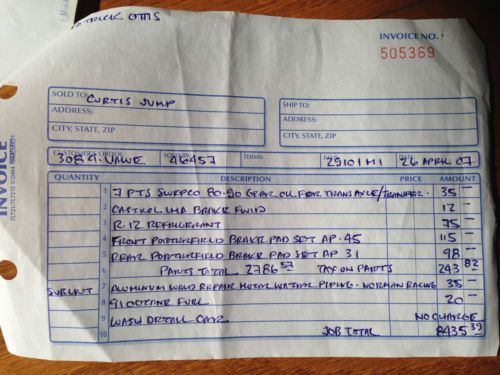 PATRICK OTTIS
INVOICE NO.
505369
SOLD TO: CURTIS JUMP
SHIP TO:
ADDRESS:
ADDRESS:
CITY, STATE, ZIP
CITY, STATE, ZIP
CUSTOMER'S ORDER: 308 4.VALVE 46457 TERMS: 29101 MI 26 APRIL 07
INVOICE
QUANTITY DESCRIPTION PRICE AMOUNT
1 7 PTS SWEPCO 80-90 GEAR OIL FOR TRANSAXLE/TRANSFER. 35 —
2 CASTROL LMA BRAKE FLUID 12 —
3 R-12 REFRIGERANT 75 —
4 FRONT PORTERFIELD BRAKE PAD SET AP-45 115 —
5 REAR PORTERFIELD BRAKE PAD SET AP 31 98 —
6 PARTS TOTAL 2786 57 TAX ON PARTS 243 82
SUBLET 7 ALUMINUM WELD REPAIR METAL WATER PIPING - NORMAN RACING 35 —
8 91 OCTANE FUEL 20 —
9 WASH DETAIL CAR NO CHARGE
10 JOB TOTAL 8435 39